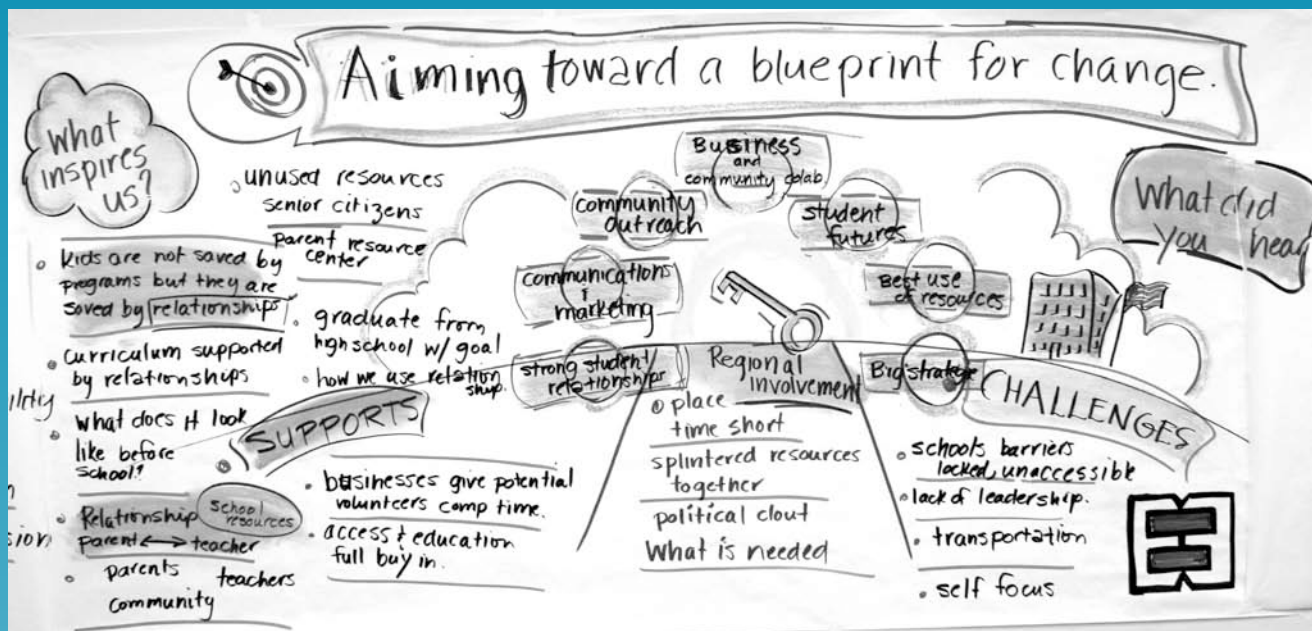 Aiming toward a blueprint for change.
What
inspires
us?
kids are not saved by
programs but they are
saved by relationships
curriculum supported
by relationships
what does it look
like before
school?
Relationship
parent ↔ teacher
school
resources
parents teachers
community
unused resources
senior citizens
parent resource
center
graduate from
highschool w/ goal
how we use relation
ship.
SUPPORTS
businesses give potential
volunteers comp time.
access & education
full buy in.
strong student/
relationships
communications
&
marketing
community
outreach
Business
and
community colab
student
futures
Best use
of resources
Big strategy
Regional
involvement
place
time short
splintered resources
together
political clout
What is needed
What did
you hear
CHALLENGES
schools barriers
locked, unaccessible
lack of leadership.
transportation
self focus